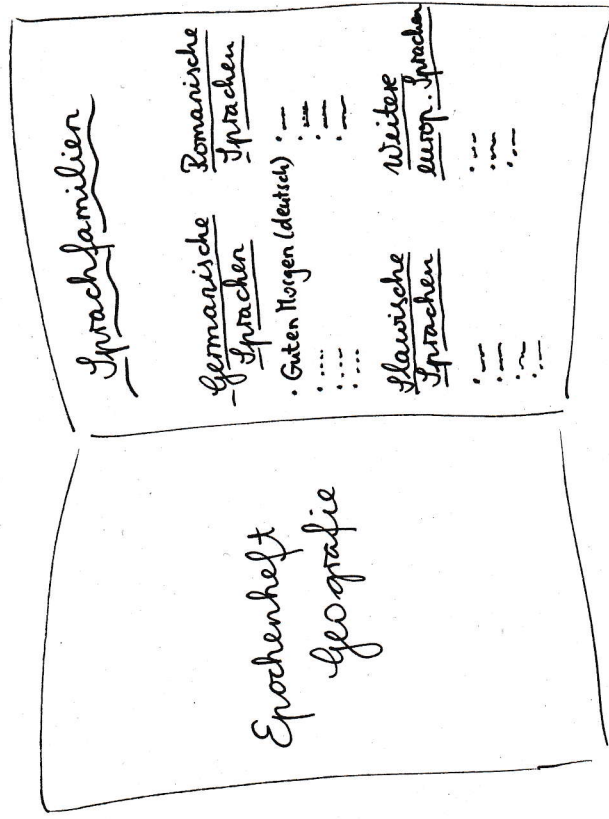 Epochenheft
Geografie
Sprachfamilien
Germanische
Sprachen
• Guten Morgen (deutsch)
Romanische
Sprachen
Slawische
Sprachen
Weitere
europ. Sprachen